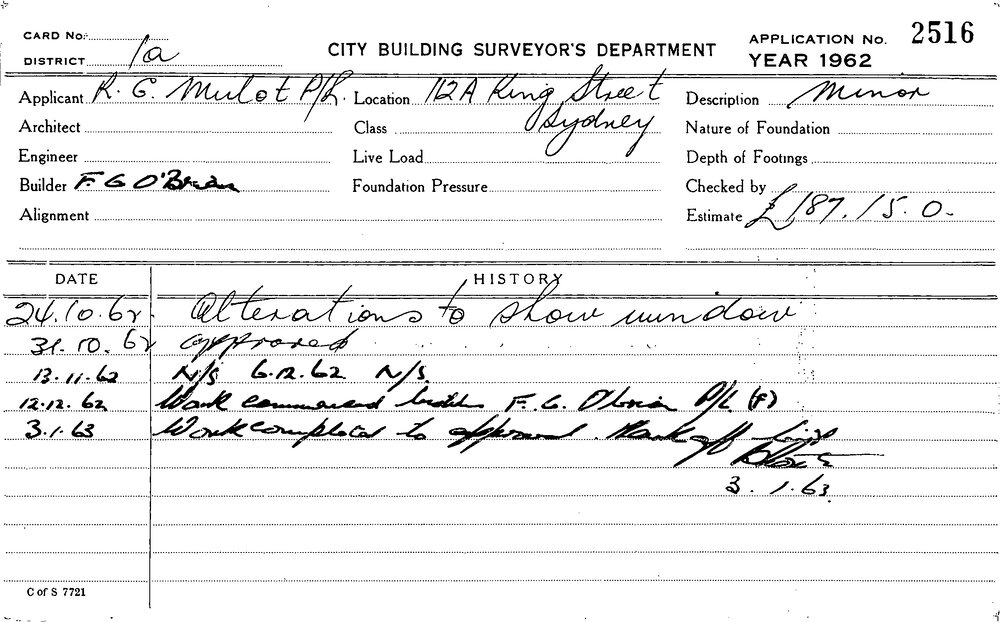 CARD No.
CITY BUILDING SURVEYOR'S DEPARTMENT
APPLICATION No. 2516
DISTRICT 1a
YEAR 1962
Applicant R. G. Mulot P/L. Location 112A King Street Description Minor
Architect Class Sydney Nature of Foundation
Engineer Live Load Depth of Footings
Builder F G O'Brien Foundation Pressure Checked by
Alignment Estimate £187.15.0.
DATE HISTORY
24.10.62 Alterations to show window
31.10.62 approved
13.11.62 N/S 6.12.62 N/S.
12.12.62 Work commenced builder F. G. O'brien P/L (F)
3.1.63 Work completed to approval. Mark off
3.1.63.
C of S 7721